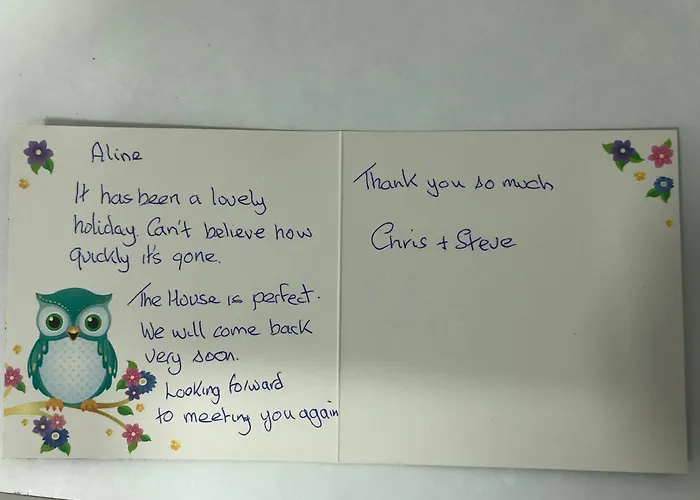 Aline
It has been a lovely
holiday. Can't believe how
quickly it's gone.
The House is perfect.
We will come back
very soon.
Looking forward
to meeting you again
Thank you so much
Chris + Steve